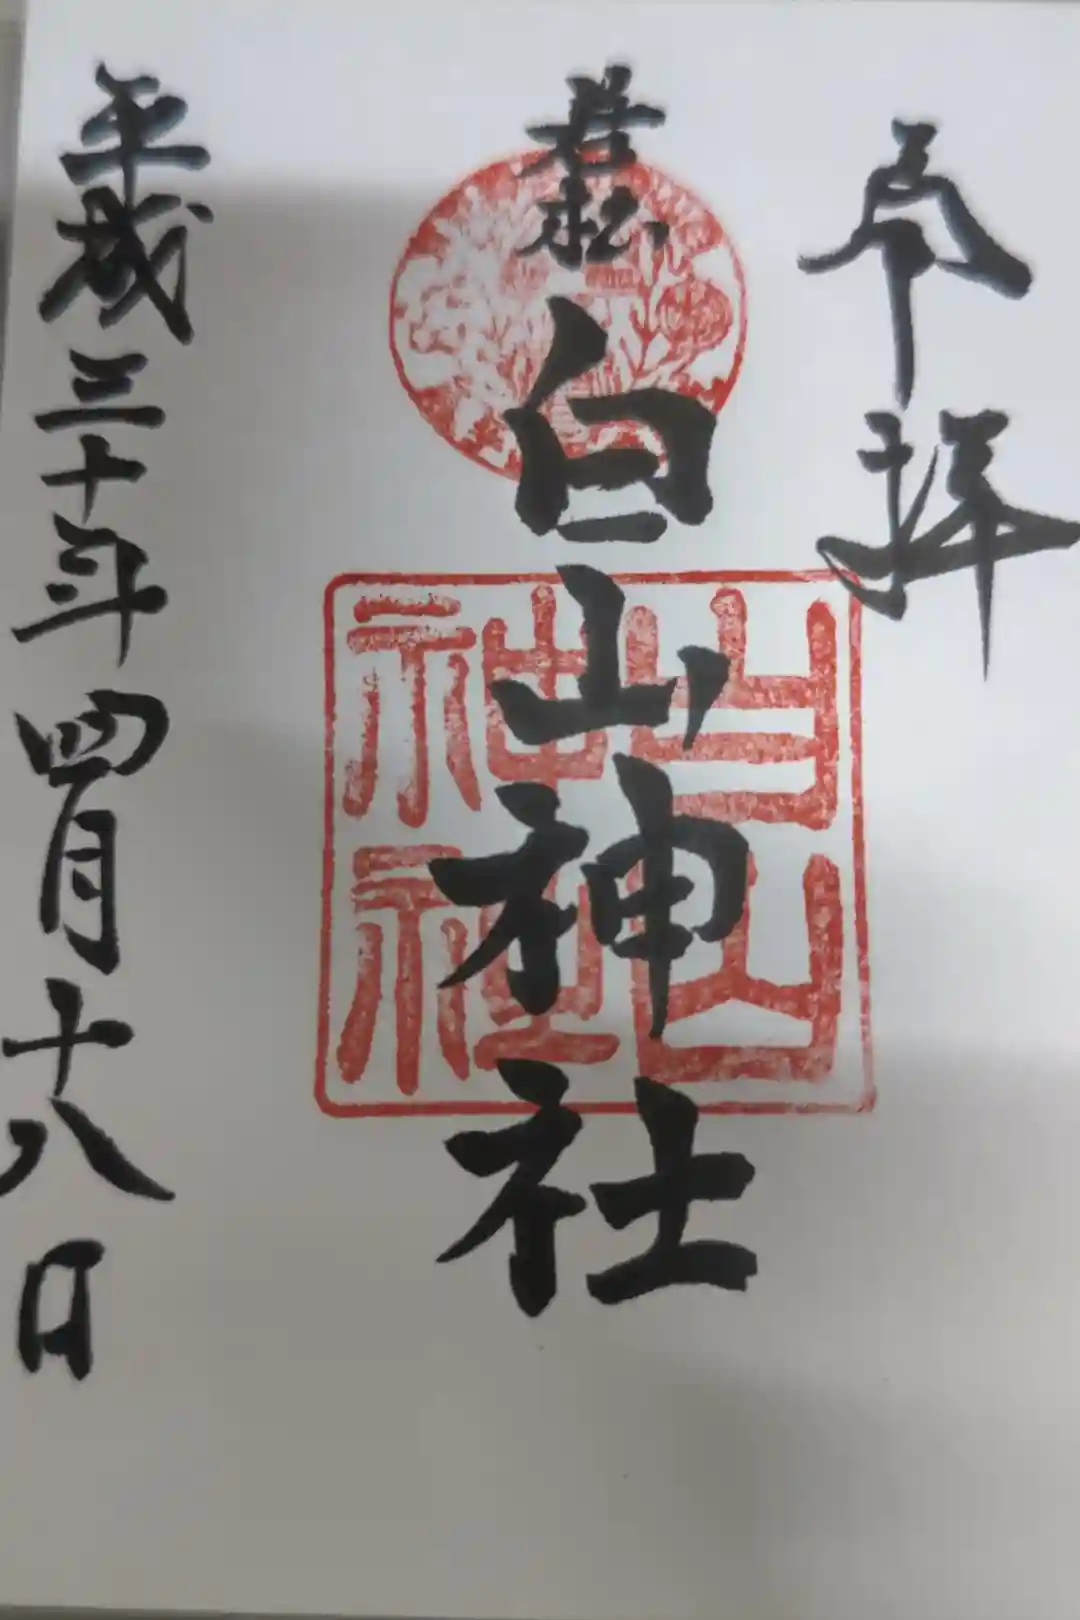 奉拝
若松
白山神社
白山神社
平成三十年四月十八日